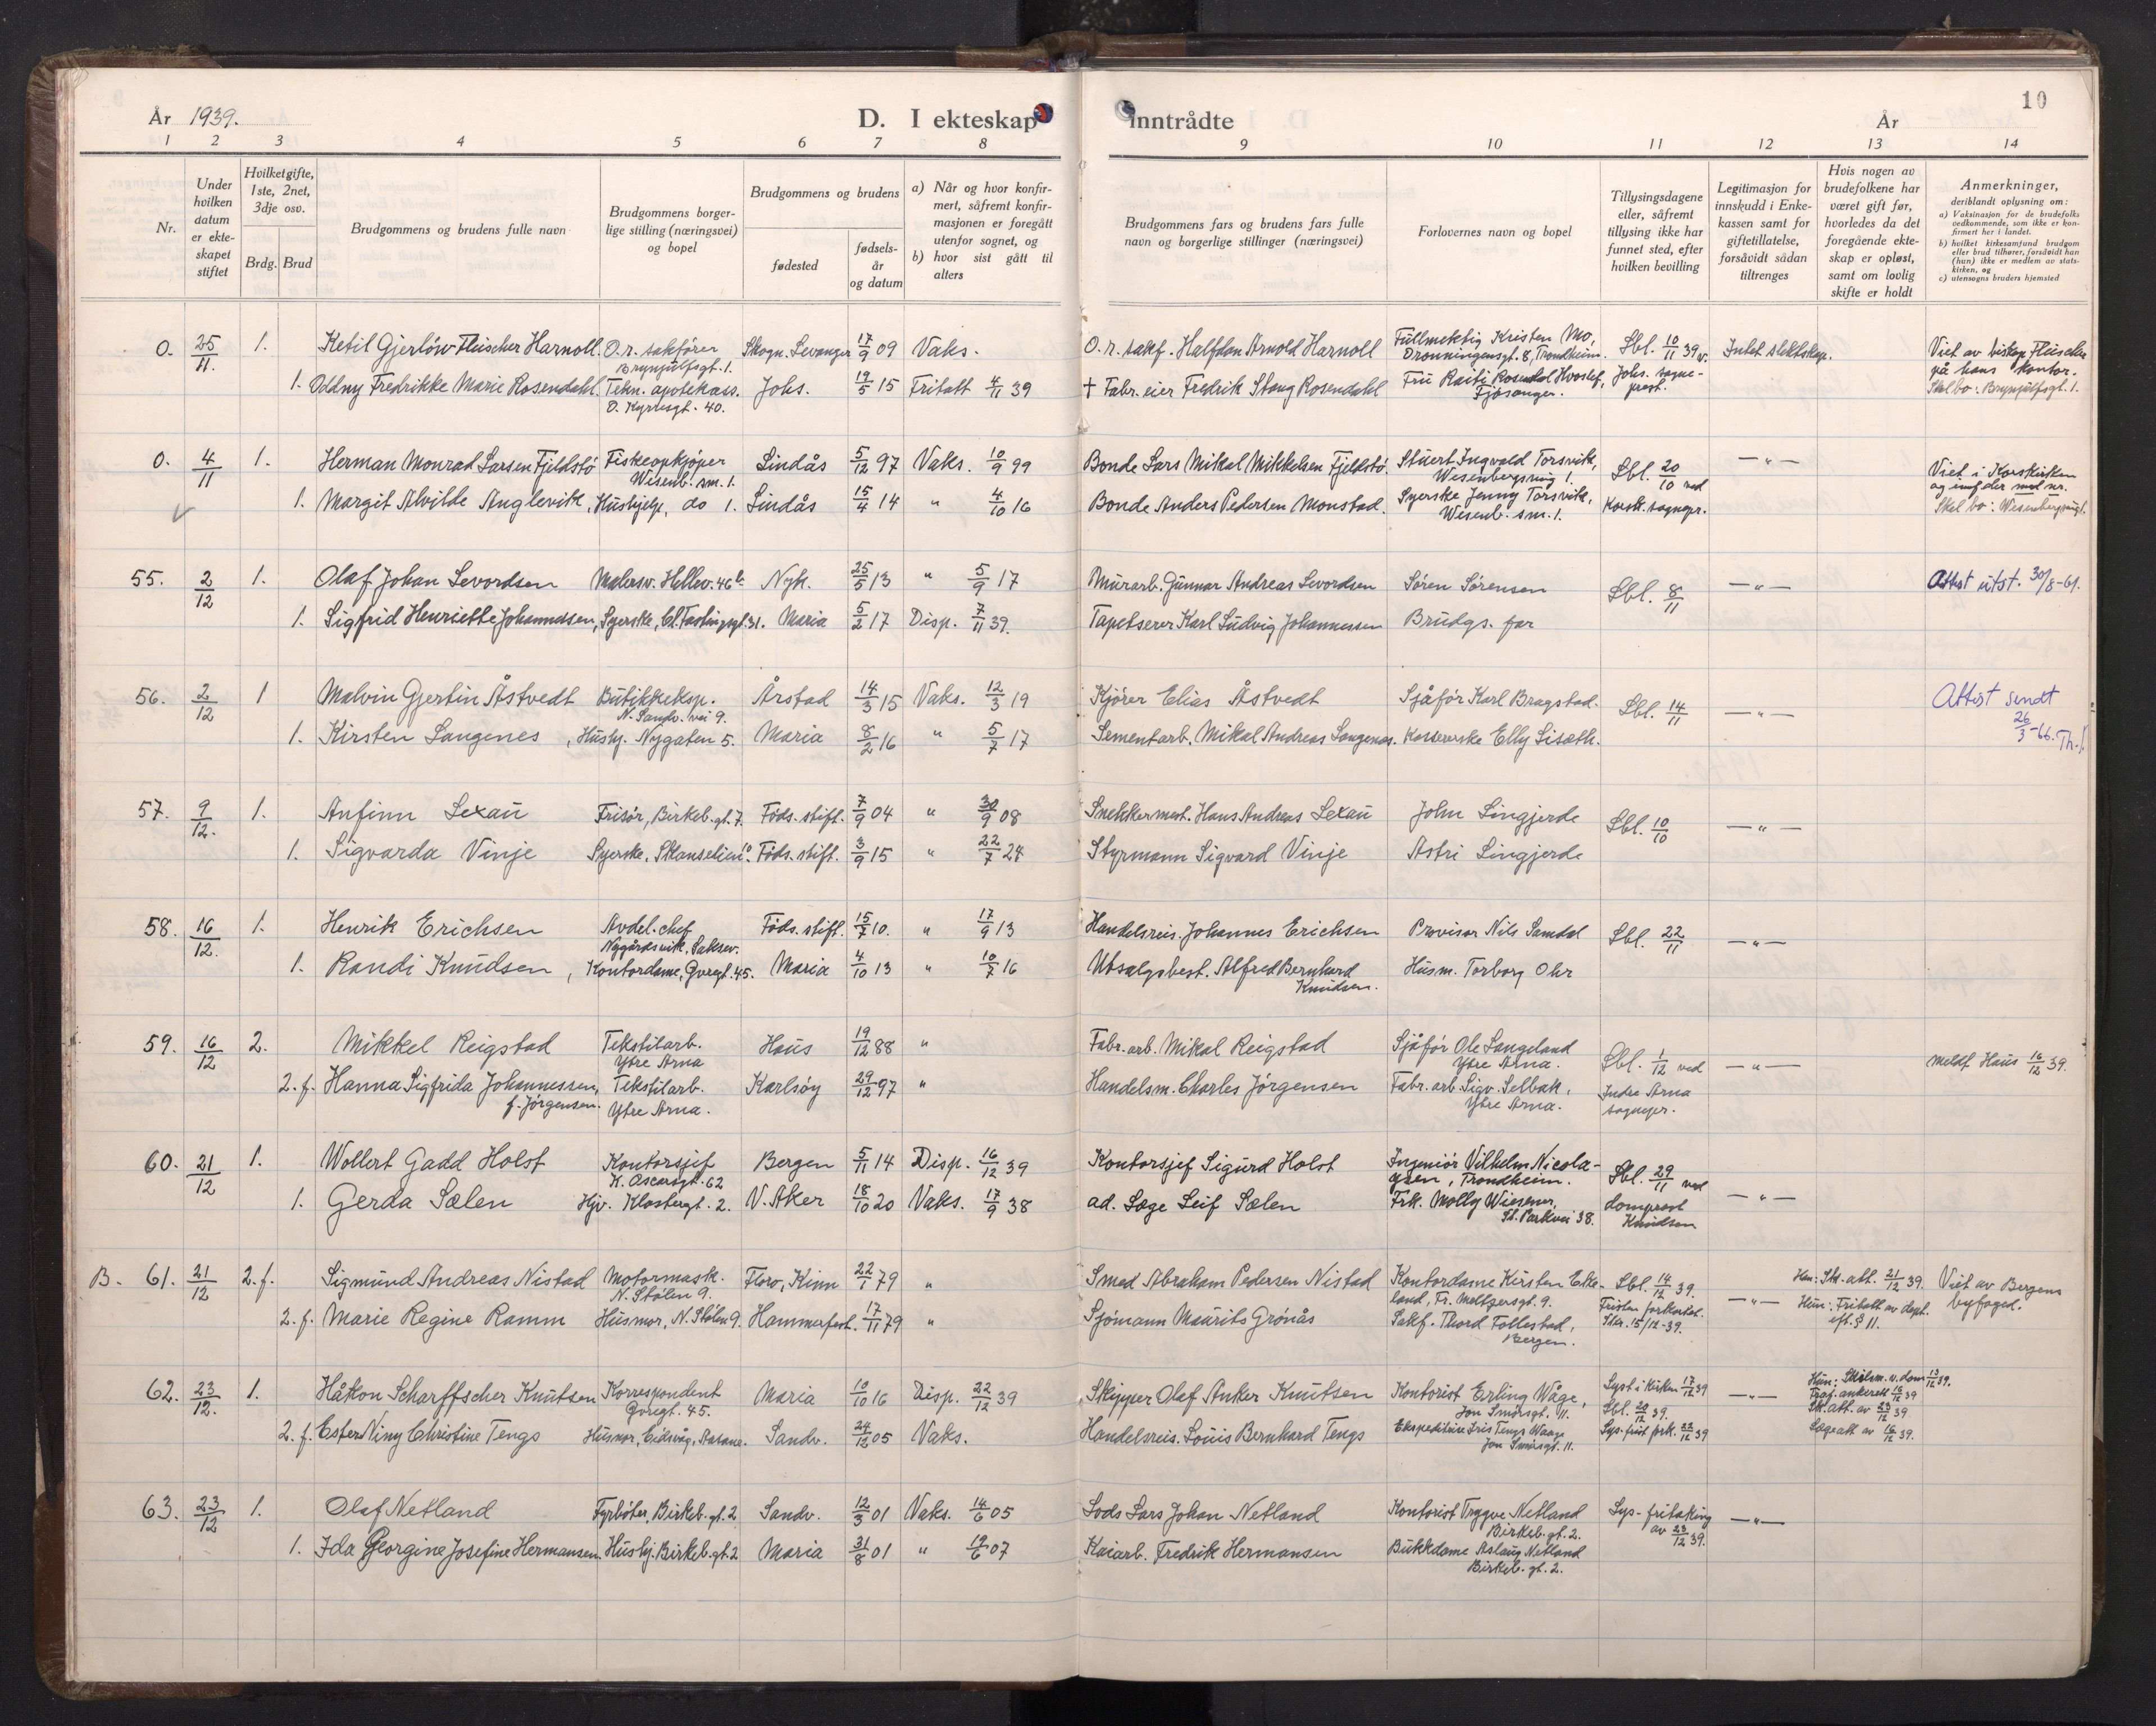 År 1939. D. I ekteskap inntrådte År 10
1 2 3 4 5 6 7 8 9 10 11 12 13 14
Nr.
Under hvilken datum er ekteskapet stiftet
Hvilket gifte, 1ste, 2net, 3dje osv.
Brdg. Brud
Brudgommens og brudens fulle navn
Brudgommens borgerlige stilling (næringsvei) og bopel
Brudgommens og brudens
fødested
fødselsår og datum
a) Når og hvor konfirmert, såfremt konfirmasjonen er foregått utenfor sognet, og
b) hvor sist gått til alters
Brudgommens fars og brudens fars fulle navn og borgerlige stillinger (næringsvei)
Forlovernes navn og bopel
Tillysingsdagene eller, såfremt tillysing ikke har funnet sted, efter hvilken bevilling
Legitimasjon for innskudd i Enkekassen samt for giftetillatelse, forsåvidt sådan tiltrenges
Hvis nogen av brudefolkene har været gift før, hvorledes da det foregående ekteskap er opløst, samt om lovlig skifte er holdt
Anmerkninger, deriblandt oplysning om:
a) Vaksinasjon for de brudefolks vedkommende, som ikke er konfirmert her i landet.
b) hvilket kirkesamfund brudgom eller brud tilhører, forsåvidt han (hun) ikke er medlem av statskirken, og
c) utensogns bruders hjemsted
0. 25/11. 1. Ketil Gjerløw Fleischer Harnoll. O.r. sakfører Brynjulfsgt. 1. Skogn. Levanger 17/9 09 Vaks. O.r. sakf. Halfdan Arnold Harnoll Fullmektig Kristen Mo, Dronningensgt. 8, Trondheim. Lbl. 10/11 39 v. Intet slektskap. Viet av biskop Fleischer på hans kontor.
1. Oddny Fredrikke Marie Rosendahl. Tekn. apotekass. O. Kyrresgt. 40. Johs. 19/5 15 Fritatt 4/11 39 † Fabr. eier Fredrik Stang Rosendahl Fru Raiti Rosendal Hvoslef, Fjøsanger. Johs. sogneprest. Skal bo: Brynjulfsgt. 1.
0. 4/11 1. Herman Monrad Larsen Fjeldstø Fiskeopkjøper Wesenb. sm. 1. Lindås 5/12 97 Vaks. 10/9 99 Bonde Lars Mikal Mikkelsen Fjeldstø. Stuert Ingvald Torsvik, Wesenbergsmug 1. Lbl. 20/10 ved —"— Viet i Korskirken og innf. der med nr.
1. Margit Alvilde Anglevik, Hushjelp, do 1. Lindås 15/4 14 " 4/10 16 Bonde Anders Pedersen Monstad. Syerske Jenny Torsvik, Wesenb. sm. 1. Korsk. sognepr. Skal bo: Wesenbergsmug 1.
55. 2/12 1. Olaf Johan Levordsen Malersv. Hellev. 46 b Nyk. 25/5 13 " 5/9 17 Murarb. Gunnar Andreas Levordsen Søren Sørensen Lbl. 8/11 —"— Attest utst. 30/8-61.
1. Sigfrid Henriette Johannessen, Syerske, Cl. Fastingsgt. 31. Maria 5/2 17 Disp. 7/11 39. Tapetserer Karl Ludvig Johannessen Brudgs. far
56. 2/12 1 Malvin Gjertin Åstvedt Butikkeksp. N. Sandv. vei 9. Årstad 14/3 15 Vaks. 12/3 19 Kjører Elias Åstvedt Sjåfør Karl Bragstad. Lbl. 14/11 —"— Attest sendt 26/3-66. Th.
1. Kirsten Langenes, Hushj. Nygaten 5. Maria 8/2 16 " 5/7 17 Sementarb. Mikal Andreas Langenes. Kassererske Elly Lisæth.
57. 9/12. 1. Anfinn Lexau Frisør, Birkeb. gt. 7. Føds. stift. 7/9 04 " 30/9 08 Snekkermest. Hans Andreas Lexau John Lingjerde Lbl. 10/10 —"—
1. Sigvarda Vinje Syerske, Skanselien 10. Føds. stift. 3/9 15 " 22/7 24 Styrmann Sigvard Vinje Astri Lingjerde
58. 16/12. 1. Henrik Erichsen Avdel. chef Nygårdsvik, Laksev. Føds. stift. 15/7 10. " 17/9 13 Handelsreis. Johannes Erichsen Provisor Nils Samdal Lbl. 22/11 —"—
1. Randi Knudsen, Kontordame, Gvregt. 45. Maria 4/10 13 " 10/7 16 Utsalgsbest. Alfred Bernhard Knudsen. Husm. Torborg Ohr
59. 16/12 2. Mikkel Reigstad Tekstilarb. Ytre Arna Haus 19/12 88 " Fabr. arb. Mikal Reigstad Sjåfør Ole Langeland Ytre Arna. Lbl. 1/12 ved —"— Meldt Haus 16/12 39.
2. f. Hanna Sigfrida Johannessen, f. Jørgensen. Tekstilarb. Ytre Arna. Karlsøy 29/12 97 " Handelsm. Charles Jørgensen Fabr. arb. Sigv. Selbak, Ytre Arna. Indre Arna sognepr.
60. 21/12 1. Wollert Gadd Holst Kontorsjef K. Oscarsgt. 62 Bergen 5/11 14 Disp. 16/12 39 Kontorsjef Sigurd Holst Ingeniør Vilhelm Nicolaysen, Trondheim. Lbl. 29/11 ved —"—
1. Gerda Sælen Hjv. Klostergt. 2. V. Aker 18/10 20 Vaks. 17/9 38 ad. Læge Leif Sælen Frk. Molly Wiesener, St. Parkvei 38. domprost Knudsen
B. 61. 21/12 2. f. Sigmund Andreas Nistad Motormask. N. Stølen 9. Florø, Kinn 22/1 79 " Smed Abraham Pedersen Nistad Kontordame Kirsten Ekeland, Fr. Meltzersgt. 9. Lbl. 14/12 39. —"— Han: Sk. att. 21/12 39. Viet av Bergens byfoged.
2. f. Marie Regine Ramm Husmor, N. Stølen 9. Hammerfest. 17/11 79 " Sjømann Maurits Grønås Sakf. Thord Follestad, Bergen. Fristen forkortet. Skr. 15/12-39. Hun: Fritatt av dept. eft. § 11.
62. 23/12. 1. Håkon Scharffscher Knutsen Korrespondent Gvregt. 45. Maria 10/10 16 Disp. 22/12 39 Skipper Olaf Anker Knutsen Kontorist Erling Wåge, Jon Smørsgt. 11. Lyst i kirken 17/12 39 Lbl. 20/12 39. —"— Hun: Skilsm. v. dom 13/12 39. Fraf. ankerett 16/12 39
2. f. Ester Niny Christine Tengs Husmor, Eidsvåg, Åsane. Sandv. 24/12 05 Vaks. Handelsreis. Louis Bernhard Tengs Ekspeditrise Iris Tengs Waage Jon Smørsgt. 11. Lys. frist fork. 22/12 39 Sk. att. av 23/12 39 Lægeatt av 16/12 39.
63. 23/12 1. Olaf Netland Fyrbøter, Birkeb. gt. 2 Sandv. 12/3 01 Vaks. 14/6 05 Lods Lars Johan Netland Kontorist Trygve Netland Birkeb. gt. 2. Lys. fritaking av 23/12 39. —"—
1. Ida Georgine Josefine Hermansen. Hushj. Birkeb. gt. 2 Maria 31/8 01 " 19/6 07 Kaiarb. Fredrik Hermansen Butikkdame Aslaug Netland Birkeb. gt. 2.